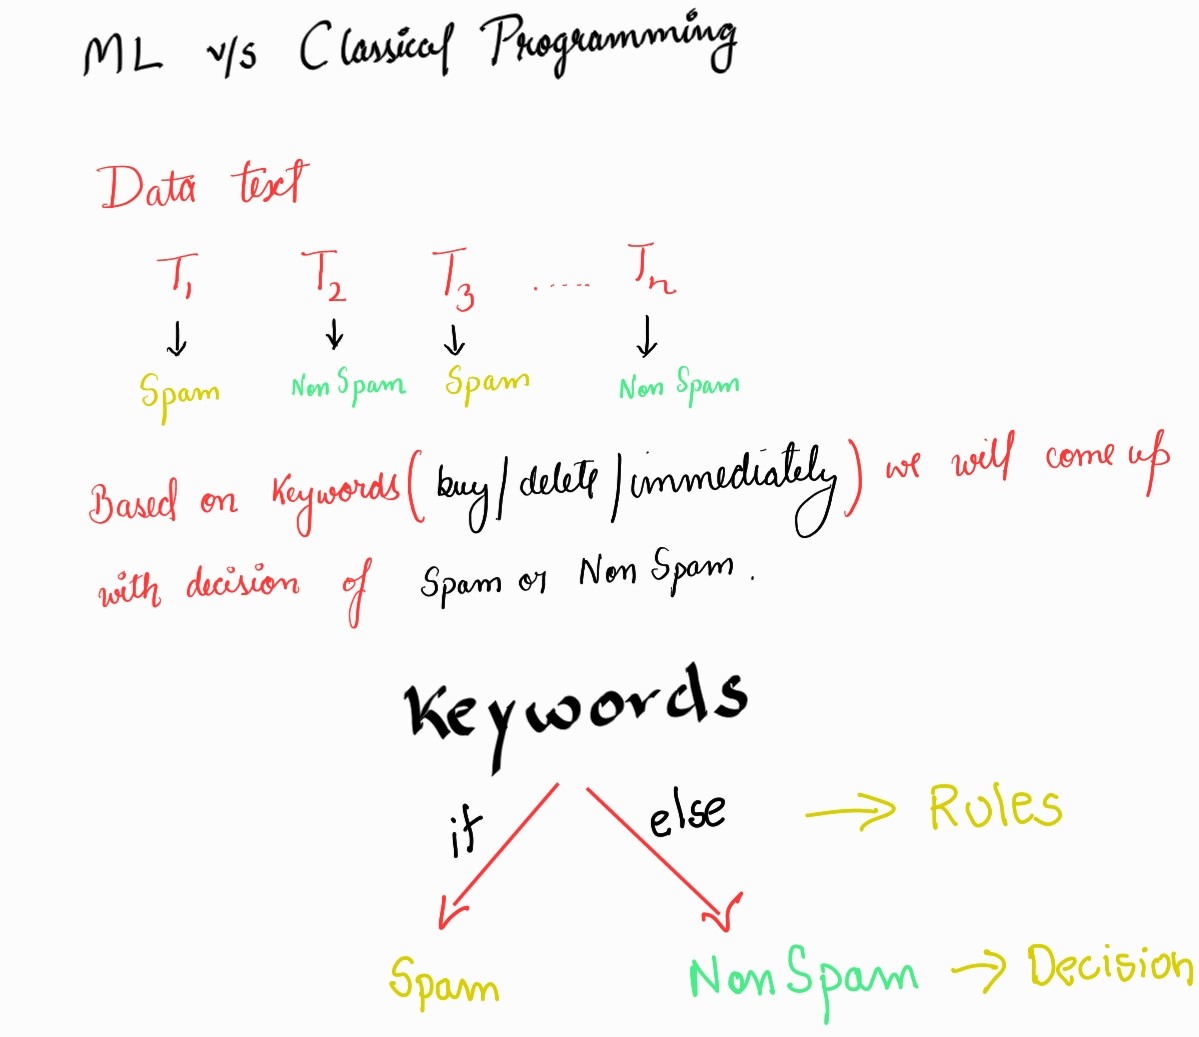 ML v/s Classical Programming
Data text
T1 T2 T3 ..... Tn
↓ ↓ ↓ ↓
Spam Non Spam Spam Non Spam
Based on Keywords (buy/delete/immediately) we will come up
with decision of Spam or Non Spam.
Keywords
if else → Rules
Spam Non Spam → Decision